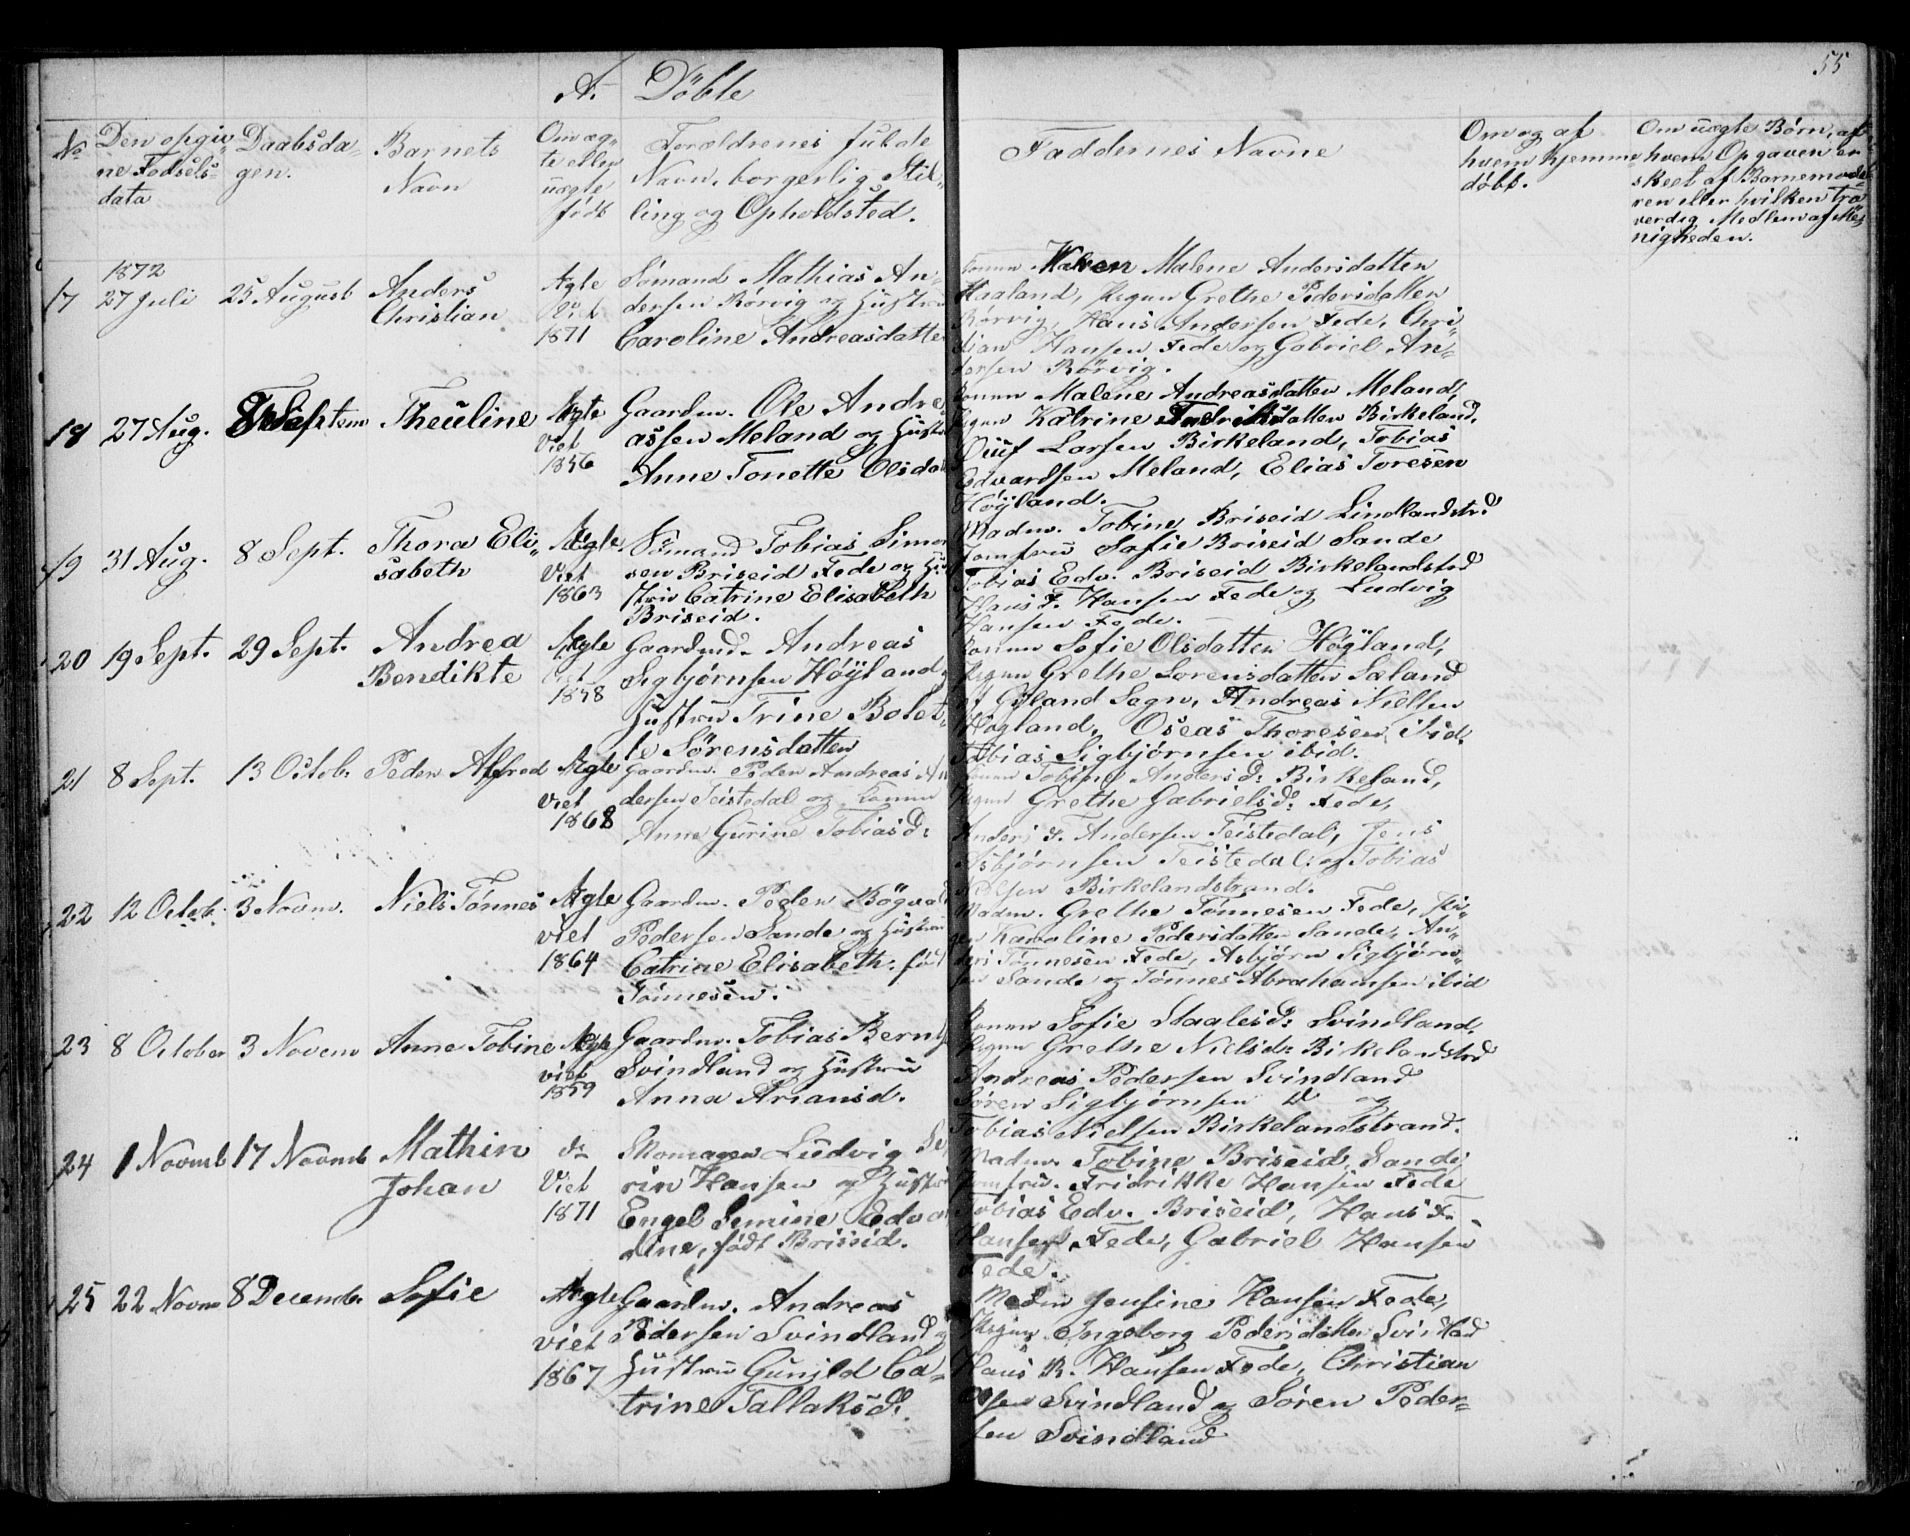 A. Döbte
55
No
Den opgiv
ne Fødsels-
data
Daabsda-
gen.
Barnets
Navn
Om æg-
te eller
uægte
født
Forældrenes fulde
Navn, borgerlig Stil-
ling og Opholdsted.
Faddernes Navne
Om og af
hvem hjemme
døbt.
Om uægte Børn, af
hvem Opgaven er
skeet af Barnemode-
ren eller hvilken tro
verdig Medlem af Me-
nigheden.
1872
17 27 Juli 25 August Anders
Christian
Ægte
Viet
1871
Sømand Mathias An-
dersen Rørvig og Hustru
Caroline Andreasdatte
Konen Malene Andersdatten
Haaland, Pigen Grethe Pedersdatten
Rørvig, Hans Andersen Fede, Chri-
stian Hansen Fede og Gabriel An-
dersen Rörvig.
18 27 Aug. 8 Septem Theuline
Ægte
Viet
1856
Gaardm. Ole Andre
assen Meland og Hustr
Anne Tonette Olsda
Konen Malene Andreasdatten Meland,
Pigen Katrine Fredriksdatten Birkeland,
Larsen Birkeland, Tobias
Edvardsen Meland, Elias Toresen
Høÿland.
19 31 Aug. 8 Sept. Thora Eli-
sabeth
Ægte
Viet
1863
Sømand Tobias Simon
sen Briseid Fede og Hu
stru Catrine Elisabeth
Briseid.
Madm. Tobine Briseid Lindlandstrd
Jomfru Safie Briseid Sande
Tobias Edv. Briseid Birkelandstrd
Hans F. Hansen Fede og Ludvig
Hansen Fede.
20 19 Sept. 29 Sept. Andrea
Bendikte
Ægte
Viet
1858
Gaardmd. Andreas
Sigbjørnsen Høÿland,
Hustru Trine Bolet-
te Sörensdatten
Konen Sofie Olsdatten Høgland,
Pigen Grethe Lorensdatten Sæland
af Gyland Sogn, Andreas Nielsen
Høgland, Oseas Thoresen ibid.
Tobias Sigbjørnsen ibid.
21 8 Sept. 13 Octob. Peder Alfred
Ægte
Viet
1868
Gaardm. Peder Andreas An
dersen Teistedal og Konen
Anne Gurine Tobiasd:
Konen Tobine Andersd: Birkeland,
Pigen Grethe Gabrielsd: Fede,
Anders F. Andersen Teistedal, Jens
Asbjørnsen Teistedal og Tobias
Nielsen Birkelandstrand.
22 12 Octob. 3 Novm. Niels Tønnes
Ægte
Viet
1864
Gaardm. Peder Bøgval
Pedersen Sande og Hustru
Catrine Elisabeth, fød
Tönnesen.
Madm. Grethe Tønnesen Fede, Pi-
gen Karoline Pedersdatten Sande, An-
ders Tönnesen Fede, Asbjørn Sigbjørn-
sen Sande og Tønnes Abrahamsen ibid
23 8 October 3 Novem Anne Tobine
Ægte
viet
1859
Gaardm. Tobias Bernt
Svindland og Hustru
Anna Ariansd.
Konen Sofie Staalesd: Svindland,
Pigen Grethe Nielsd: Birkelandstrd
Andreas Pedersen Svindland
Søren Sigbjørnsen D og
Tobias Nielsen Birkelandstrand.
24 1 Novmb 17 Novmb Mathin
Johan
do
Viet
1871
Skomager Ludvig Se
rin Hansen og Hustru
Engel Semine Edva
dine, født Briseid.
Madm. Tobine Briseid Sande,
Jomfru Fridrikke Hansen Fede
Tobias Edv. Briseid, Hans F.
Hansen Fede, Gabriel Hansen
Fede.
25 22 Novm 8 Decemb. Sofie
Ægte
viet
1867
Gaardm. Andreas
Pedersen Svindland og
Hustru Gunild Ca-
trine Tallaksd.
Madm Jensine Hansen Fede,
Pigen Ingeborg Pedersdatter Svindland
Hans R. Hansen Fede, Christian
Olsen Svindland og Søren Peder-
sen Svindland